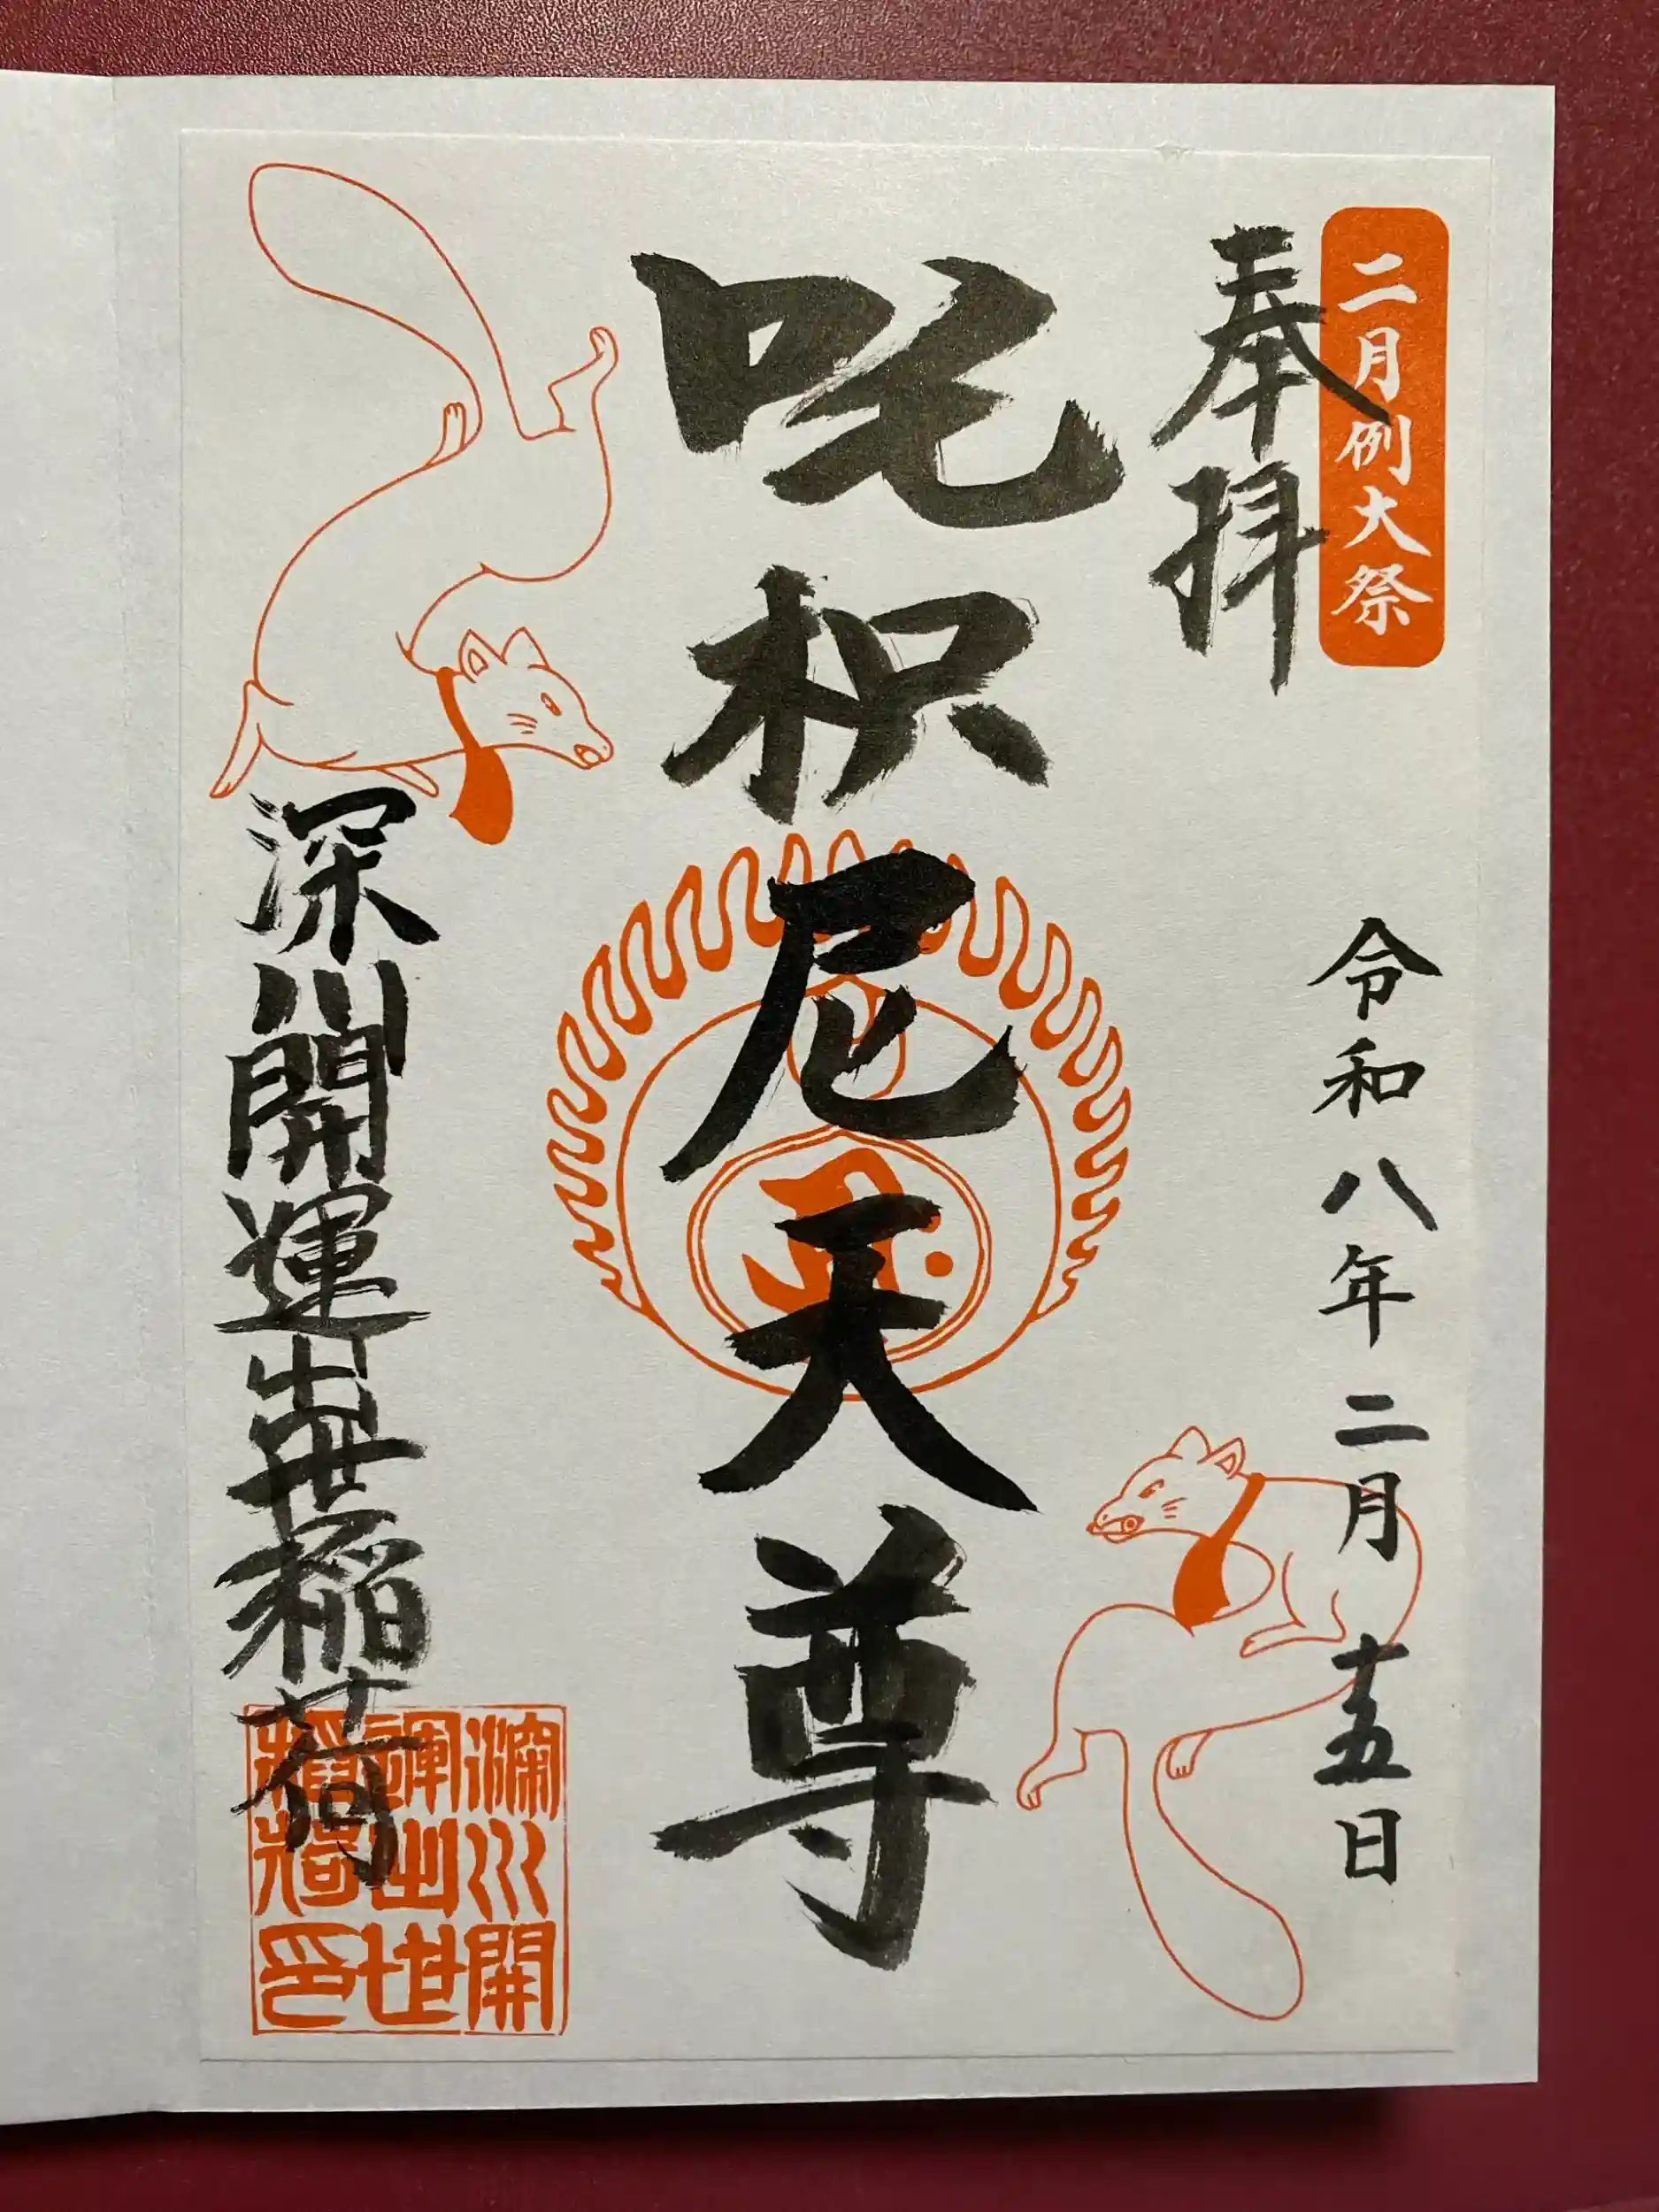 二月例大祭
奉拝
令和八年二月十五日
吒枳尼天尊
深川開運出世稲荷
深川開
運出世
稲荷印